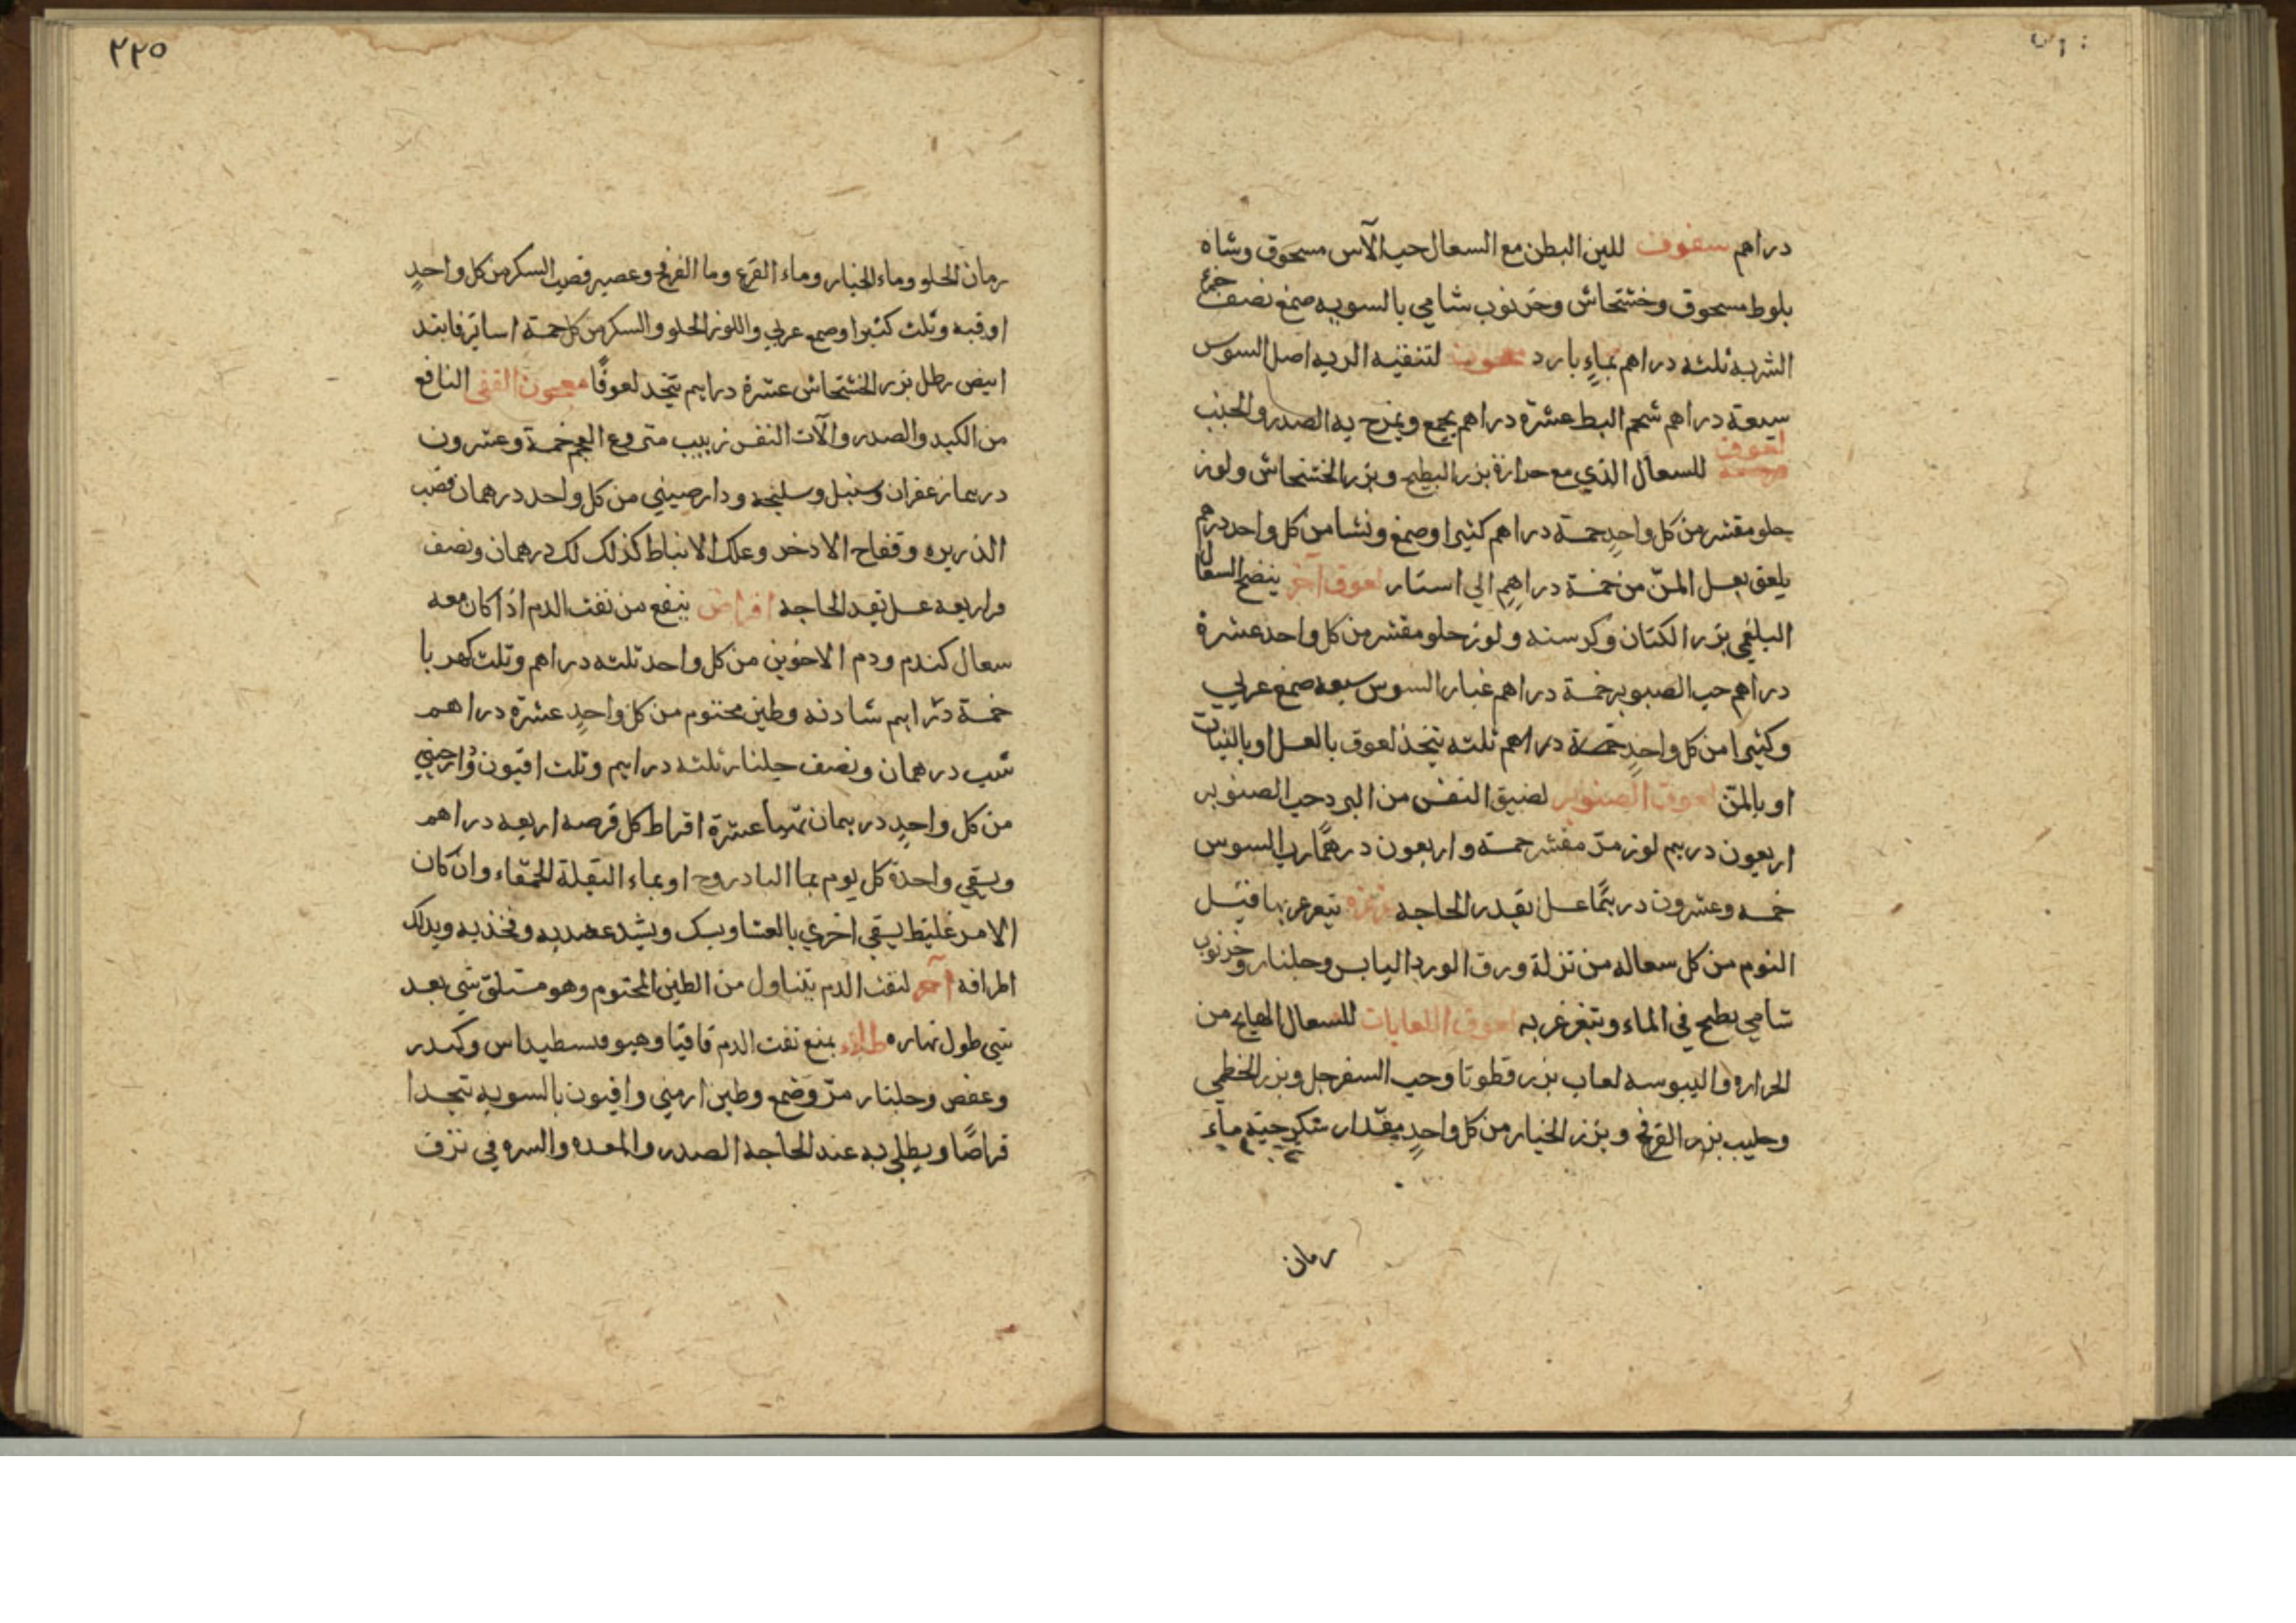 دراهم سفوف للين البطن مع السعال حب الآس مسحوق وشاه
بلوط مسحوق وخشخاش وخرنوب شامي بالسويه صمغ نصف جزء
الشربه ثلثه دراهم بماءٍ بارد لتنقيه الريه اصل السوس
سبعة دراهم شحم البط عشرة دراهم يجمع ويمرح به الصدر والجنب
لعوق
للسعال الذي مع حرارة بزر البطيخ وبزر الخشخاش ولوز
حلو مقشر من كل واحدٍ خمسة دراهم كثيرا وصمغ ونشا من كل واحد درهم
يلعق بعسل المنّ من خمسة دراهم الي استار لعوق آخر ينضج السعال
البلغمي بزر الكتان وكرسنه ولوز حلو مقشر من كل واحد عشرة
دراهم حب الصنوبر خمسة دراهم غبار السوس سبعه صمغ عربي
وكثيرا من كل واحدٍ دراهم ثلثه يتخذ لعوق بالعسل او
او بالمنّ لعوق الصنوبر لضيق النفس من البرد حب الصنوبر
اربعون درهم لوز مرّ مقشر خمسة واربعون درهمًا رب السوس
خمسه وعشرون درهمًا عسل بقدر الحاجه غرغره يتغرغر بها قبل
النوم من كل سعاله من نزلة ورق الورد اليابس وجلنار وخرنوب
شامي يطبخ في الماء ويتغرغر به لعوق اللعابات للسعال الهايج من
الحراره واليبوسه لعاب بزر قطونا وحب السفرجل وبزر الخطمي
وحليب بزر القرع وبزر الخيار من كل واحدٍ مقدار سكرجة ماء
رمان
٢٢٥
رمان الحلو وماء الخيار وماء القرع وما الفرفخ وعصير قصب السكر من كل واحدٍ
اوقيه وثلث كثيرا وصمغ عربي واللوز الحلو والسكر من كل خمسة اساتير فانيد
ابيض رطل بزر الخشخاش عشرة دراهم يتخذ لعوقًا معجون القفي النافع
من الكبد والصدر وآلات النفس زبيب منزوع العجم خمسة وعشرون
درهما زعفران وسنبل وسليخه ودارصيني من كل واحد درهمان قصب
الذريره وفقاح الادخر وعلك الانباط كذلك لك درهمان ونصف
مر اربعه عسل بقدر الحاجه اقراص ينفع من نفث الدم اذا كان معه
سعال كندم ودم الاخوين من كل واحد ثلثه دراهم وثلث كهربا
خمسة دراهم شادنه وطين مختوم من كل واحدٍ عشرة دراهم
شب درهمان ونصف جلنار ثلثه دراهم وثلث افيون ودارصيني
من كل واحدٍ درهمان عشرة اقراط كل قرصه اربعه دراهم
ويسقي واحدة كل يوم بما البادروج او بماء البقلة الحمّقاء وان كان
الامر غليظ يسقي اخري بالعشا ويشد عضديه وفخذيه ويدلك
اطرافه آخر لنفث الدم يتناول من الطين المختوم وهو مستلقّ شي بعد
شي طول نهاره طلاء يمنع نفث الدم قاقيا وهيوفسطيداس وكندر
وعفص وجلنار مرّ وصمغ وطين ارمني وافيون بالسويه يتخذ ا
قراصًا ويطلي به عند الحاجه الصدر والمعده والسره في نزف